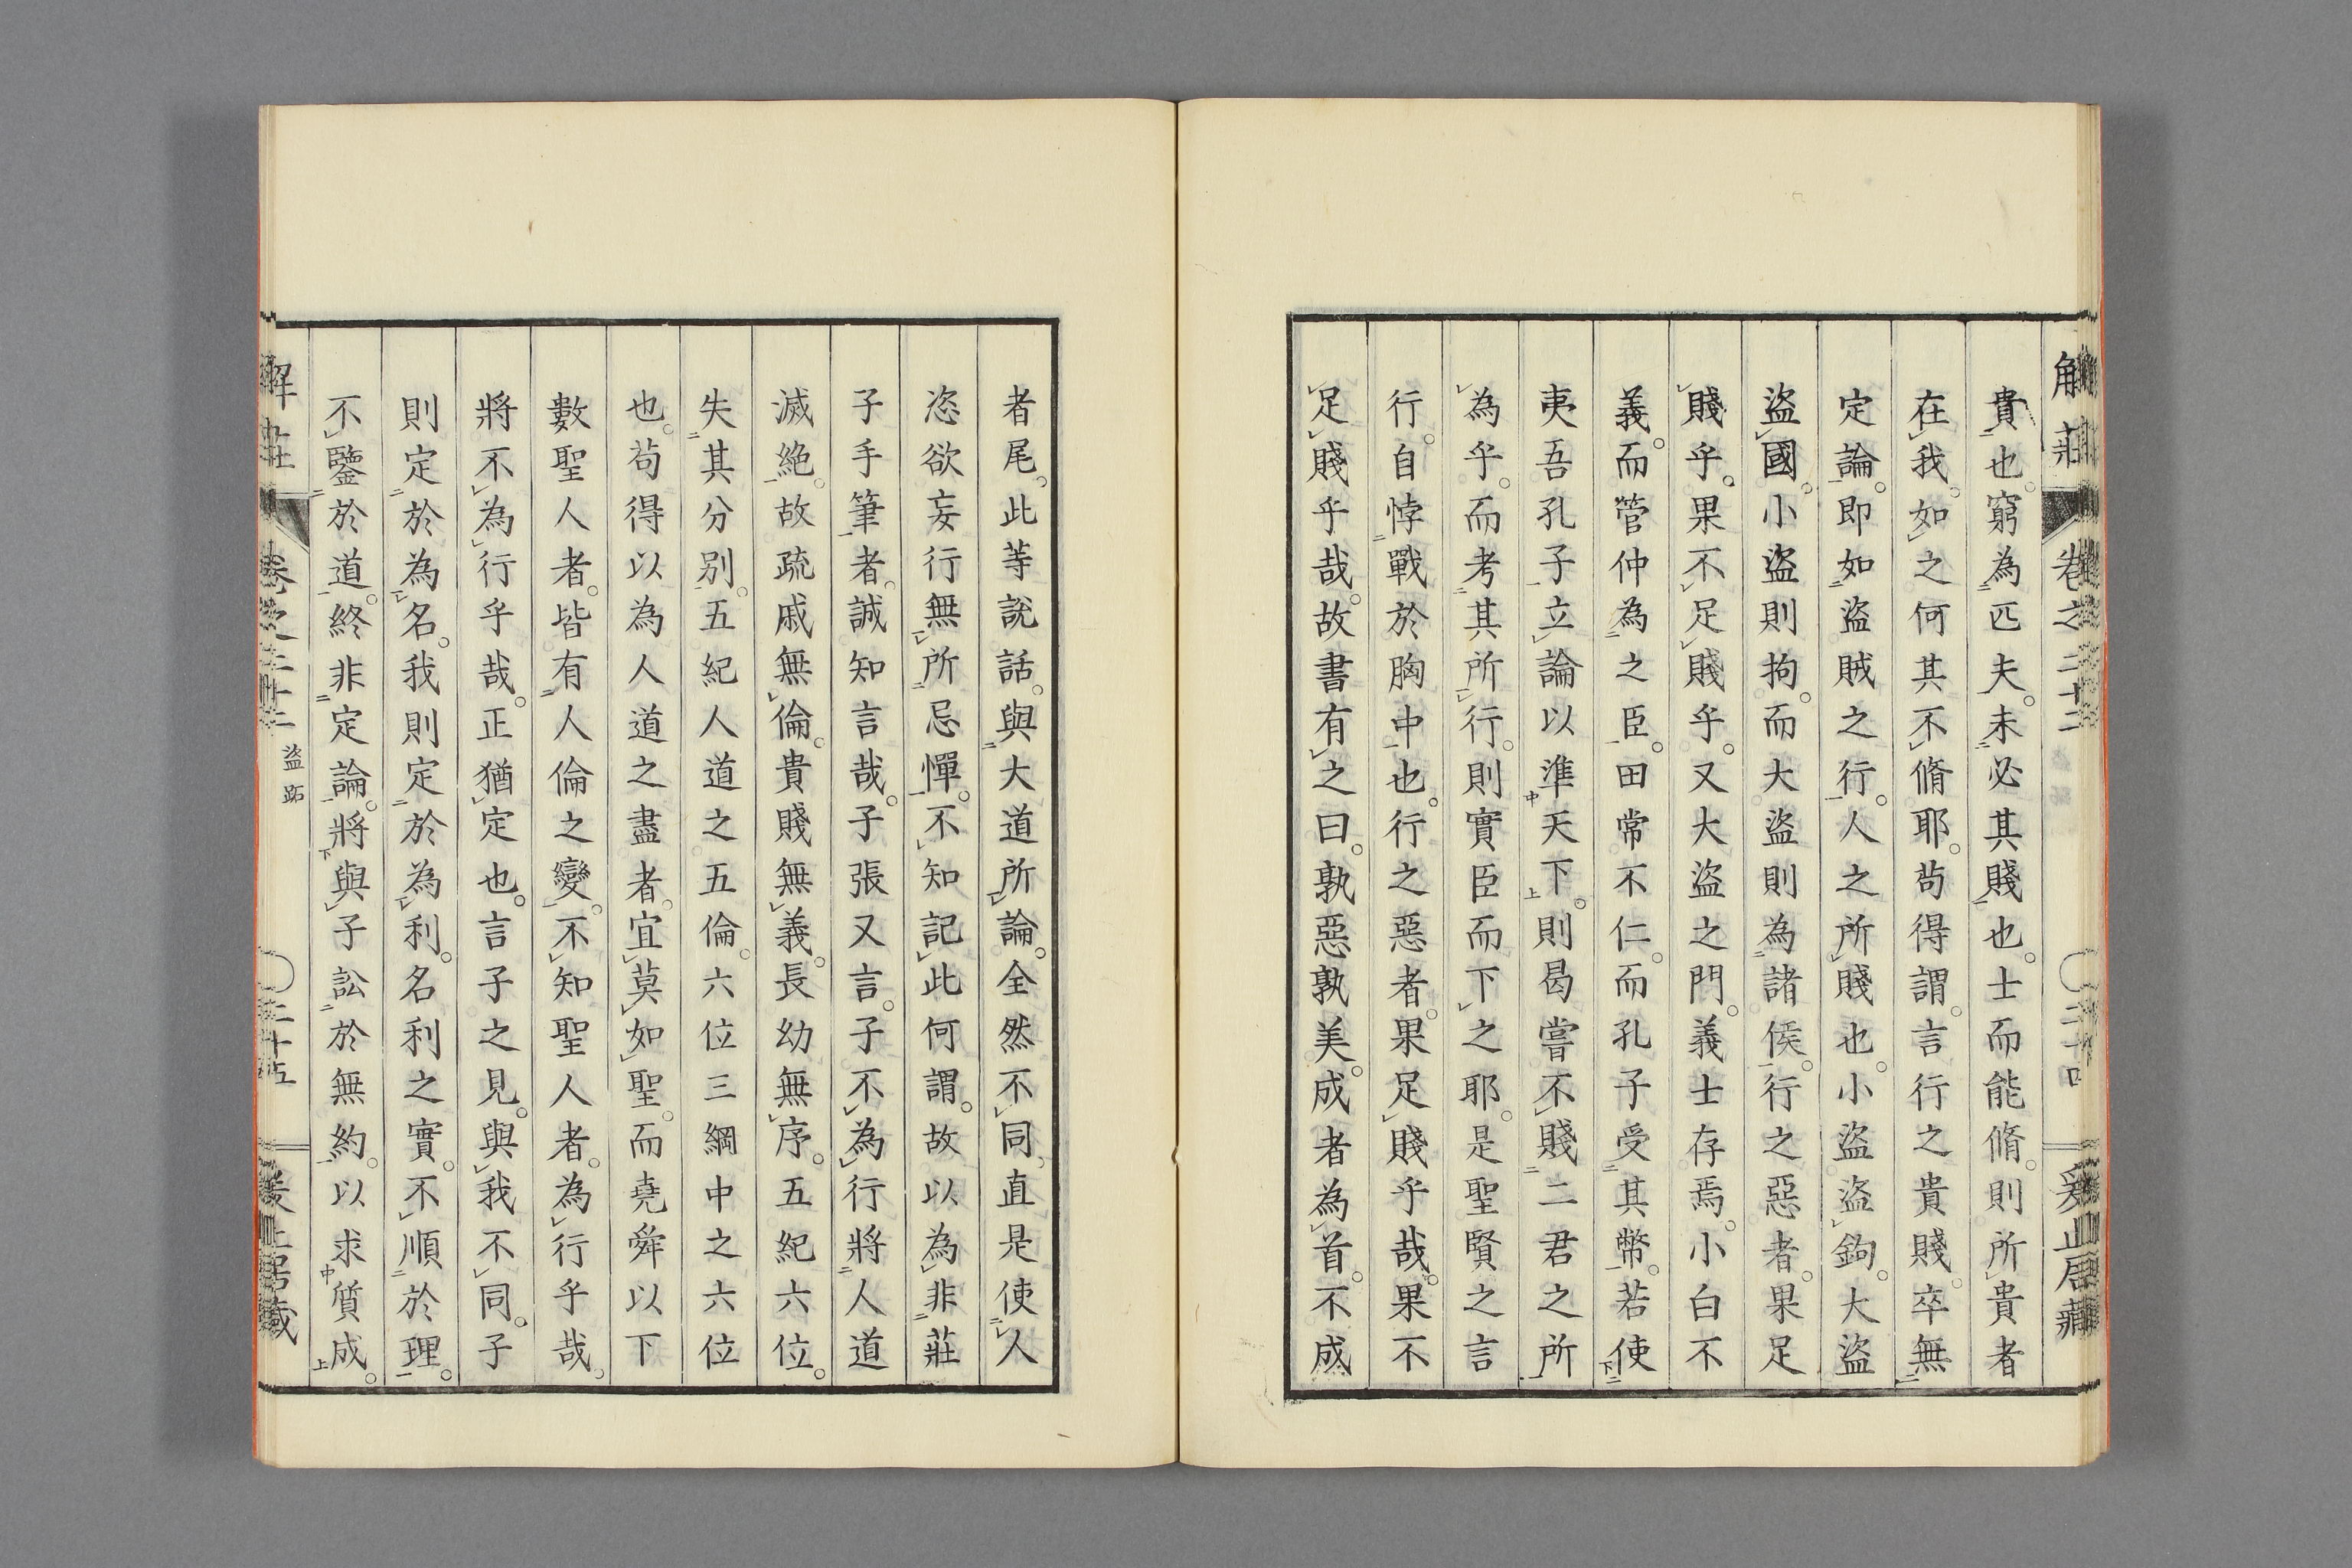 解莊 卷之二十二 二十四
貴也。窮為匹夫。未必其賤也。士而能脩。則所貴者
在我。如之何其不脩耶。苟得謂。言行之貴賤。卒無
定論。即如盜賊之行。人之所賤也。小盜盜鉤。大盜
盜國。小盜則拘。而大盜則為諸侯。行之惡者。果足
賤乎。果不足賤乎。又大盜之門。義士存焉。小白不
義。而管仲為之臣。田常不仁。而孔子受其幣。若使
夷吾孔子立論以準天下。則曷嘗不賤二君之所
為乎。而考其所行。則實臣而下之耶。是聖賢之言
行。自悖戰於胸中也。行之惡者。果足賤乎哉。果不
足賤乎哉。故書有之曰。孰惡孰美。成者為首。不成
者尾。此等說話。與大道所論。全然不同。直是使人
恣欲妄行無所忌憚。不知記此何謂。故以為非莊
子手筆者。誠知言哉。子張又言。子不為行。將人道
滅絕。故疏戚無倫。貴賤無義。長幼無序。五紀六位。
失其分別。五紀人道之五倫。六位三綱中之六位
也。苟得以為人道之盡者。宜莫如聖。而堯舜以下
數聖人者。皆有人倫之變。不知聖人者。為行乎哉。
將不為行乎哉。正猶定也。言子之見。與我不同。子
則定於為名。我則定於為利。名利之實。不順於理。
不鑒於道。終非定論。將與子訟於無約。以求質成。
解莊 卷之二十二 盜跖 二十五